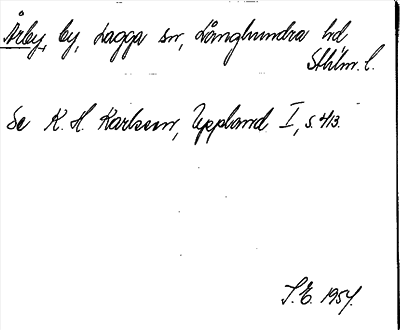 Årby, by, Lagga sn, Långhundra hd
Sthlm. l.
Se K. H. Karlsson, Uppland I, s. 413.
S. E. 1954.